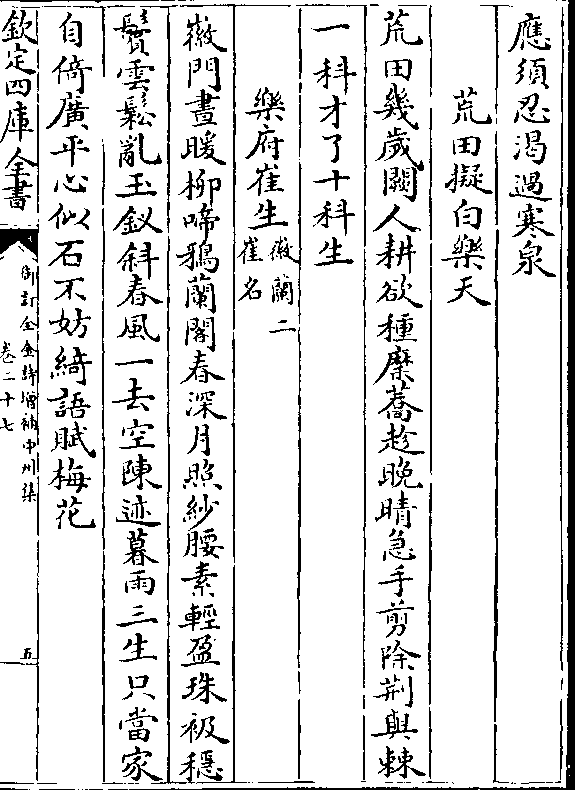 應須忍渴過寒泉
荒田擬白樂天
荒田幾歲闕人耕欲種糜蕎趁晚晴急手剪除荆與棘
一科才了十科生
樂府崔生徽蘭二崔名
徽門晝暖柳啼鴉蘭閣春深月照紗腰素輕盈珠衱穩
鬢雲鬆亂玉釵斜春風一去空陳迹暮雨三生只當家
自倚廣平心似石不妨綺語賦梅花
欽定四庫全書
御訂全金詩增補中州集
卷二十七
五